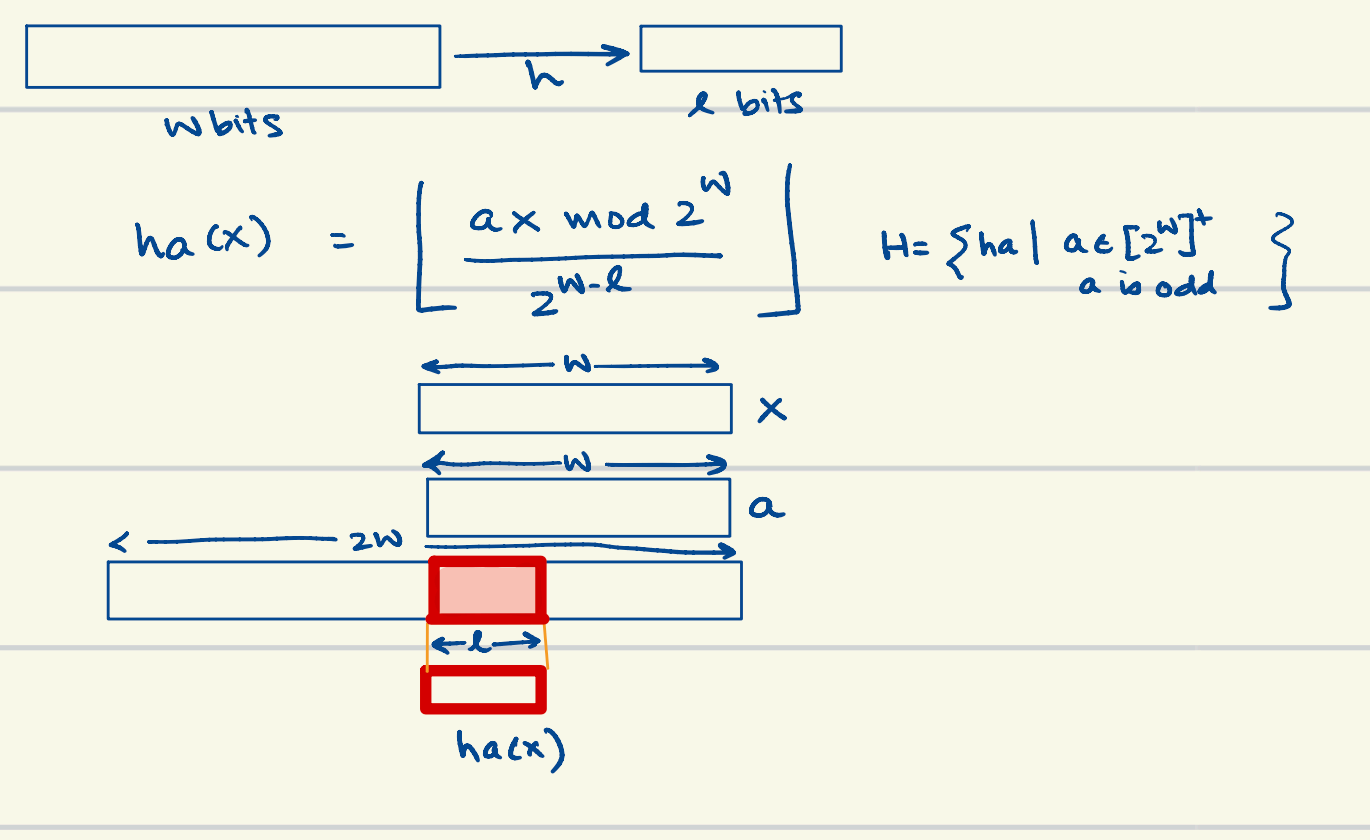 h
w bits
l bits
ha(x) = ⌊ ax mod 2^w / 2^(w-l) ⌋ H = {ha | a ∈ [2^w]^+ a is odd }
w
x
w
a
2w
l
ha(x)